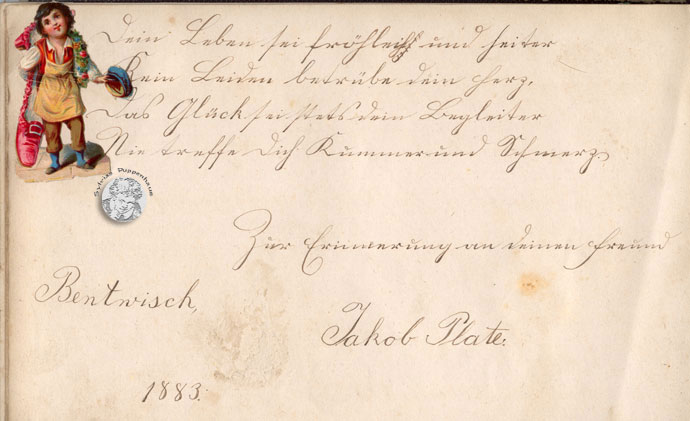 Dein Leben sei fröhlich und heiter
Kein Leiden betrübe dein Herz,
Das Glück sei stets dein Begleiter
Nie treffe dich Kummer und Schmerz.
Sylvias Puppenhaus
Zur Erinnerung an deinen Freund
Bentwisch,
Jakob Plate.
1883.